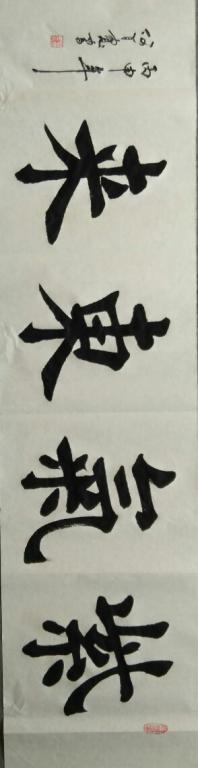 紫氣東来
丙申年